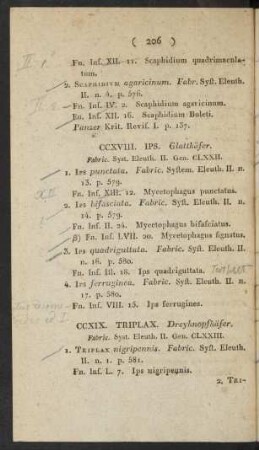 ( 206 )
Fn. Inf. XII. 11. Scaphidium quadrimacula-
tum.
2. SCAPHIDIUM agaricinum. Fabr. Syst. Eleuth.
II. n. 4. p. 576.
Fn. Inf. IV. 2. Scaphidium agaricinum.
Fn. Inf. XII. 16. Scaphidium Boleti.
Panzer Krit. Revis. I. p. 137.
CCXVIII. IPS. Glattkäfer.
Fabric. Syst. Eleuth. II. Gen. CLXXII.
1. IPS punctata. Fabric. System. Eleuth. II. n.
13. p. 579.
Fn. Inf. XIII. 12. Mycetophagus punctatus.
2. IPS bifasciata. Fabric. Syst. Eleuth. II. n.
14. p. 579.
Fn. Inf. II. 24. Mycetophagus bifasciatus.
β) Fn. Inf. LVII. 20. Mycetophagus signatus.
3. IPS quadriguttata. Fabric. Syst. Eleuth. II.
n. 16. p. 580.
Fn. Inf. III. 18. Ips quadriguttata.
4. IPS ferruginea. Fabric. Syst. Eleuth. II. n.
17. p. 580.
Fn. Inf. VIII. 15. Ips ferruginea.
CCXIX. TRIPLAX. Dreyknopfkäfer.
Fabric. Syst. Eleuth. II. Gen. CLXXIII.
1. TRIPLAX nigripennis. Fabric. Syst. Eleuth.
II. n. 1. p. 581.
Fn. Inf. L. 7. Ips nigripennis.
2. TRI-